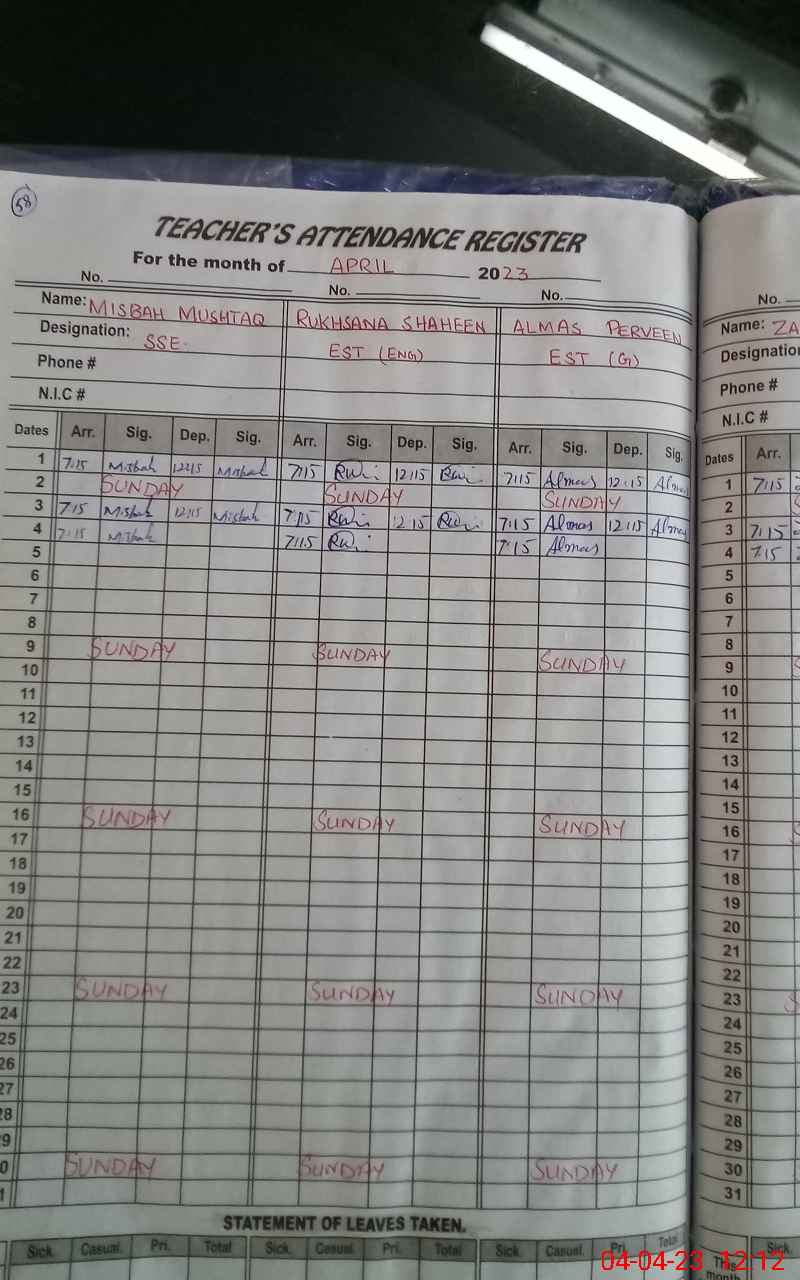 58
TEACHER'S ATTENDANCE REGISTER
For the month of APRIL 2023
No. No. No. No.
Name: MISBAH MUSHTAQ RUKHSANA SHAHEEN ALMAS PERVEEN Name: ZA
Designation: SSE. EST (ENG) EST (G) Designation
Phone # Phone #
N.I.C # N.I.C #
Dates Arr. Sig. Dep. Sig. Arr. Sig. Dep. Sig. Arr. Sig. Dep. Sig. Dates Arr.
1 7:15 Misbah 12:15 Misbah 7:15 12:15 7:15 Almas 12:15 Almas 1 7:15
2 SUNDAY SUNDAY SUNDAY 2
3 7:15 Misbah 12:15 Misbah 7:15 12:15 7:15 Almas 12:15 Almas 3 7:15
4 7:15 Misbah 7:15 7:15 Almas 4 7:15
5 5
6 6
7 7
8 8
9 SUNDAY SUNDAY SUNDAY 9 S
10 10
11 11
12 12
13 13
14 14
15 15
16 SUNDAY SUNDAY SUNDAY 16 S
17 17
18 18
19 19
20 20
21 21
22 22
23 SUNDAY SUNDAY SUNDAY 23 S
24 24
25 25
26 26
27 27
28 28
9 29
0 SUNDAY SUNDAY SUNDAY 30
1 31
STATEMENT OF LEAVES TAKEN.
Sick. Casual. Pri. Total Sick. Casual. Pri. Total Sick. Casual. Pri. Total This month Sick.
04-04-23 12:12